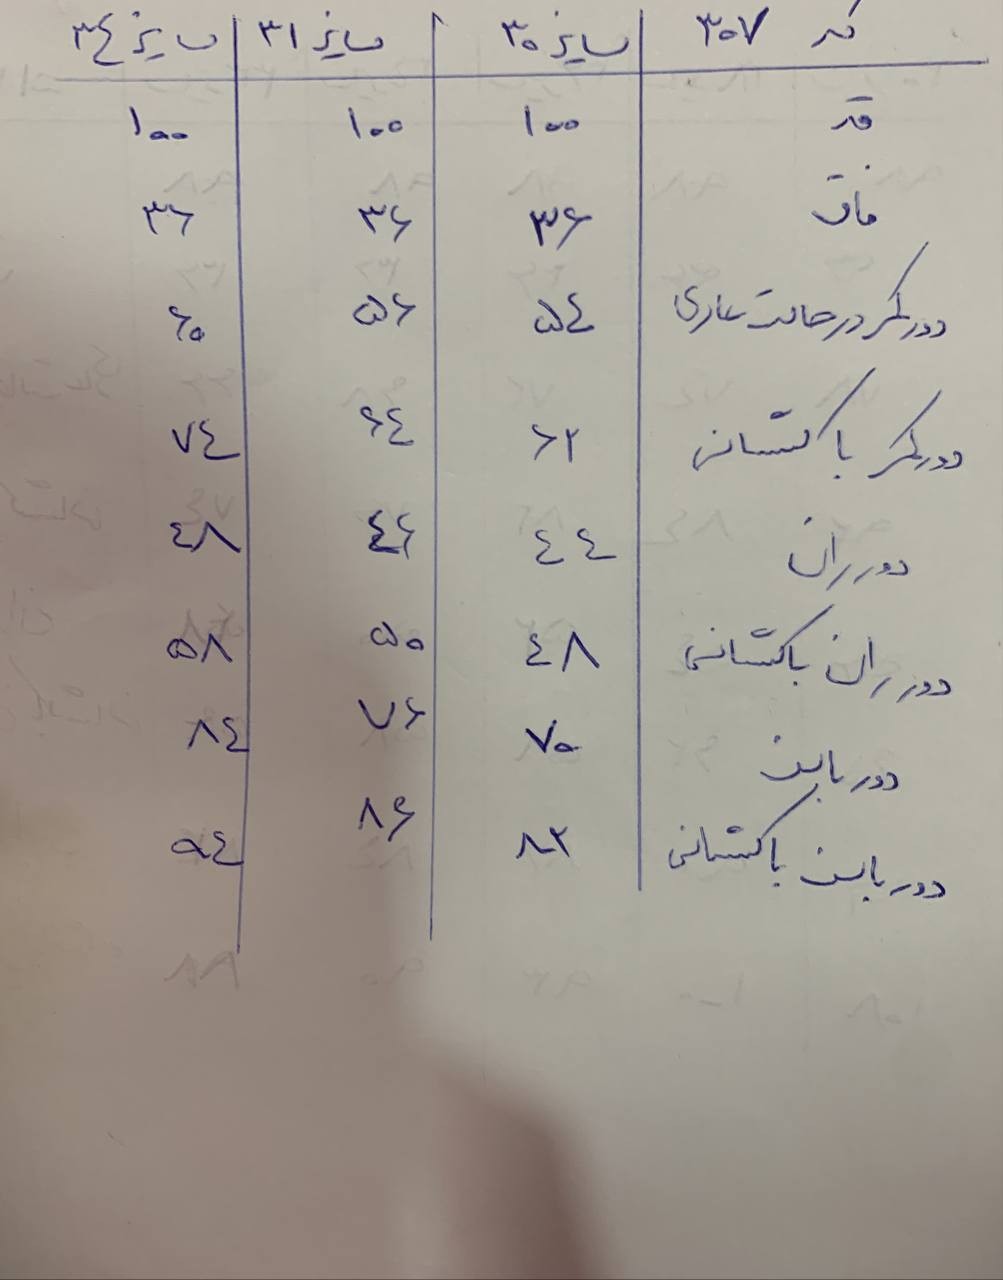 کد ۳۰۷ سایز ۳۰ سایز ۳۱ سایز ۳۴
قد ۱۰۰ ۱۰۰ ۱۰۰
فاق ۳۶ ۳۶ ۳۶
دور کمر در حالت عادی ۵۴ ۵۶ ۶۰
دور کمر با کشسانی ۶۲ ۶۴ ۷۴
دور ران ۴۴ ۴۶ ۴۸
دور ران با کشسانی ۴۸ ۵۰ ۵۸
دور باسن ۷۰ ۷۶ ۸۴
دور باسن با کشسانی ۸۲ ۸۶ ۹۴